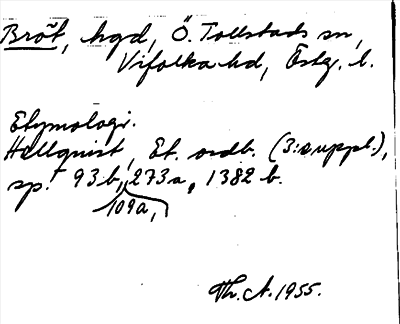 Bröt, hgd, Ö. Tollstads sn,
Vifolka hd, Östg. l.
Etymologi.
Hellquist, Et. ordb. (3: suppl.),
sp. 93 b, 273 a, 1382 b.
109a,
Th. A. 1955.